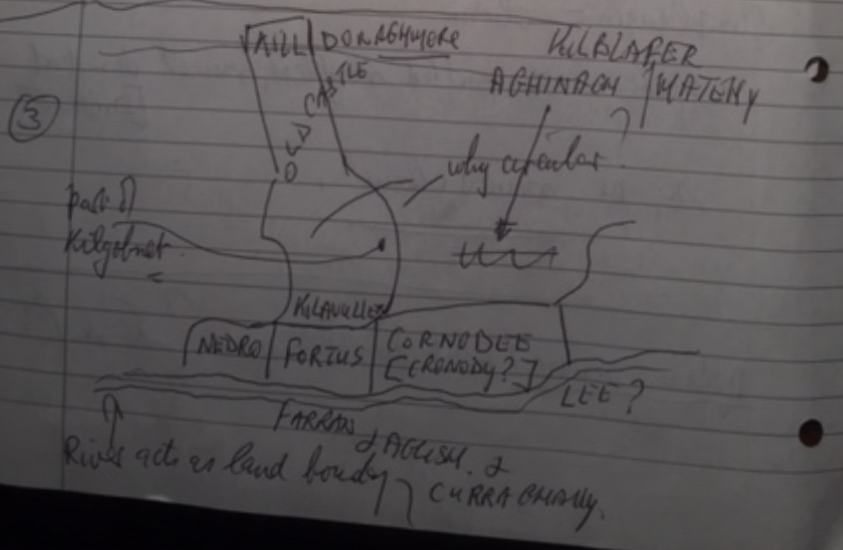 KILL DONAGHMORE KILBLAFER
AGHINAGH / MATEHY
③
OLD CASTLE
?
why circular
part of
Kilgobnet
KILAVULLEN
NEDRO FORTUS CORNODEE
[CRONODY?]
LEE?
FARRAN & AGLISH. &
River acts as land boundy
CURRAGHALLY.